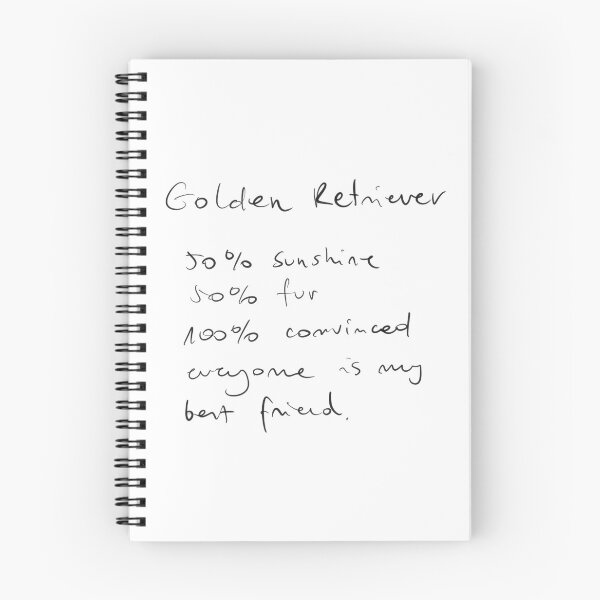 Golden Retriever
50% sunshine
50% fur
100% convinced
everyone is my
best friend.